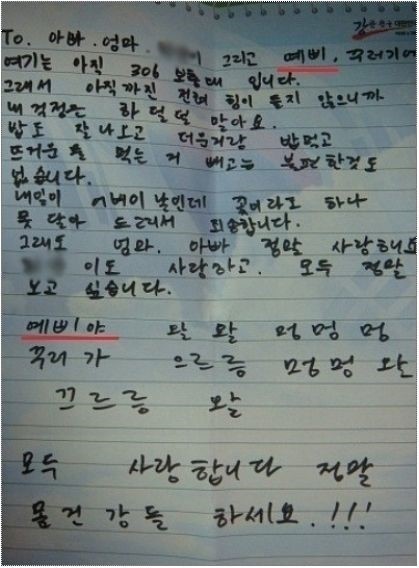 강한 친구 대한
To. 아빠. 엄마. 이 그리고 예삐, 꾸러기에
여기는 아직 306 보충대 입니다.
그래서 아직까진 전혀 힘이 들지 않으니까
내 걱정은 하덜덜 말아요.
밥도 잘 나오고 더운거랑 밥먹고
뜨거운 물 먹는 거 빼고는 불편한것도
없습니다.
내일이 어버이 날인데 꽃이라도 하나
못 달아 드려서 죄송합니다.
그래도 엄마. 아빠 정말 사랑해요
이도 사랑하고. 모두 정말
보고 싶습니다.
예삐야 왈 왈 멍 멍 멍
꾸리가 으르릉 멍멍 왈
끄르릉 왈
모두 사랑합니다 정말
몸건강들 하세요.!!!